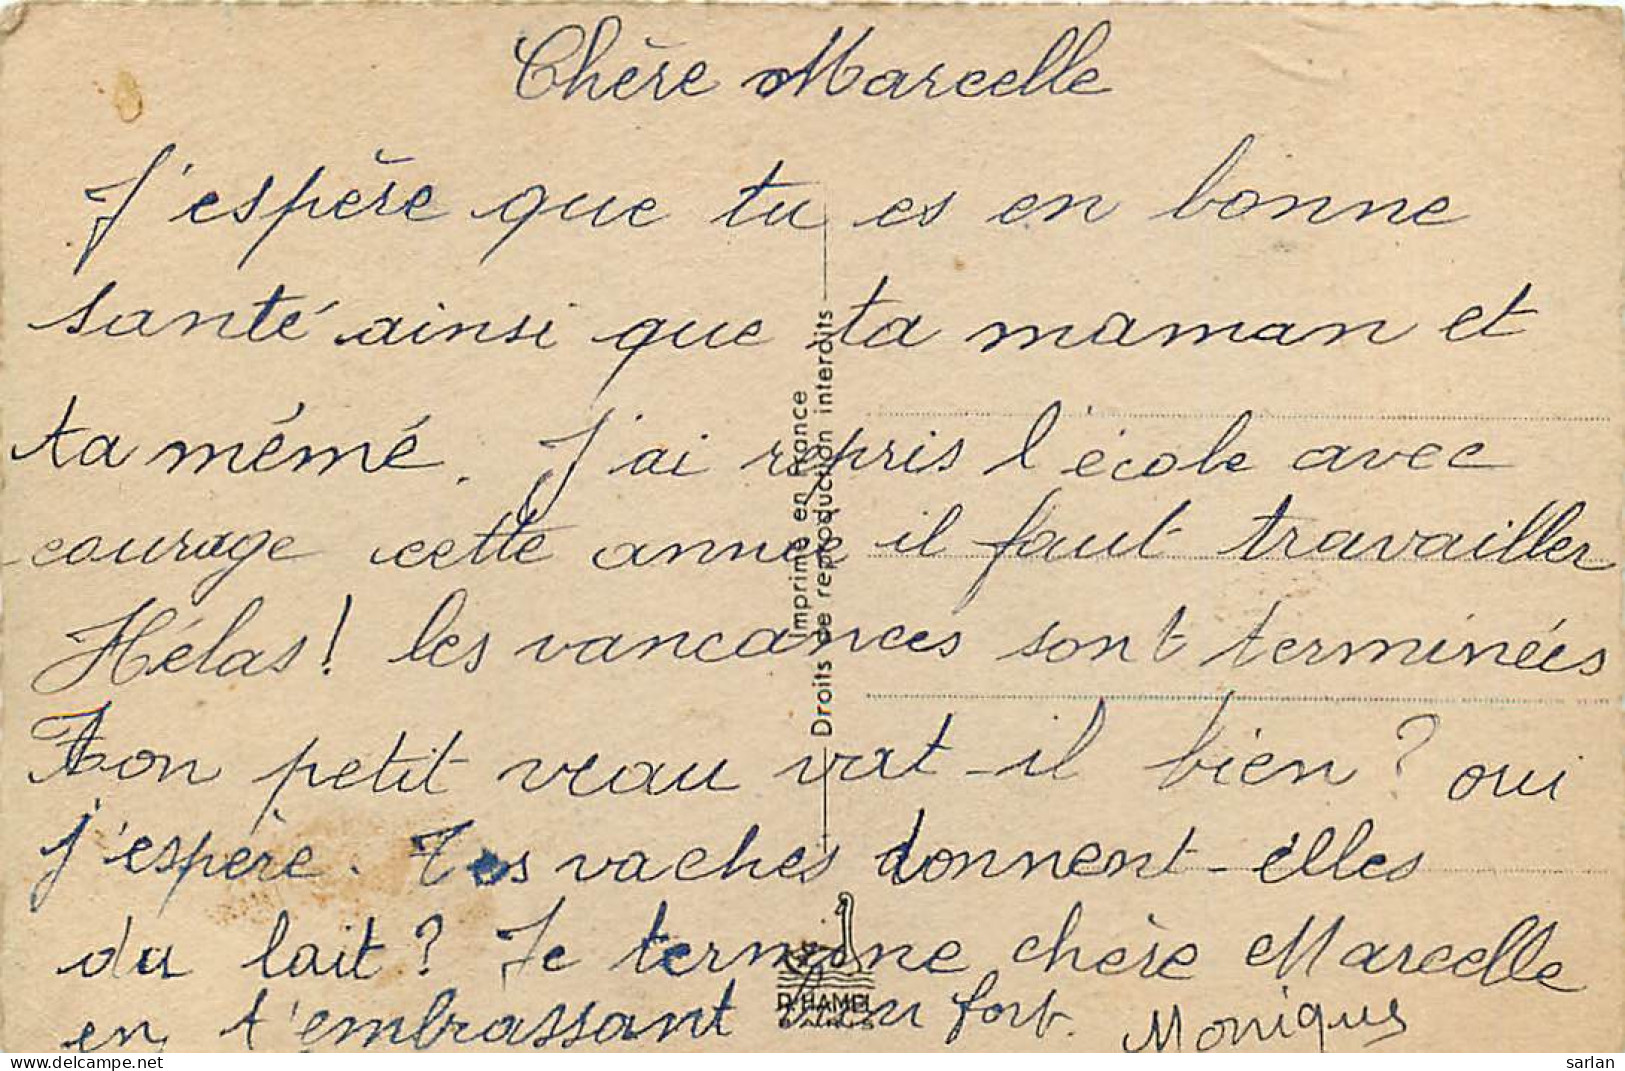 Chère Marcelle
J'espère que tu es en bonne
santé ainsi que ta maman et
ta mémé. J'ai repris l'école avec
courage cette année il faut travailler
Hélas! les vancances sont terminées
Ton petit veau vat-il bien? oui
j'espère. Tes vaches donnent-elles
du lait? Je termine chère Marcelle
en t'embrassant bien fort. Monique
Imprimé en France
Droits de reproduction interdits
PARIS
sarlan